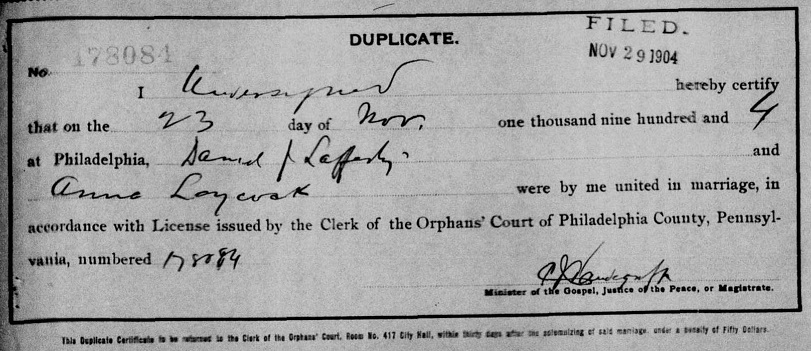 DUPLICATE.
FILED.
NOV 29 1904
No. 178084
I Undersigned hereby certify
that on the 23 day of Nov. one thousand nine hundred and 4
at Philadelphia, Daniel J Lafferty and
Anna Laycock were by me united in marriage, in
accordance with License issued by the Clerk of the Orphans' Court of Philadelphia County, Pennsyl-
vania, numbered 178084
Minister of the Gospel, Justice of the Peace, or Magistrate.
This Duplicate Certificate is to be returned to the Clerk of the Orphans' Court, Room No. 417 City Hall, within thirty days after the solemnizing of said marriage, under a penalty of Fifty Dollars.